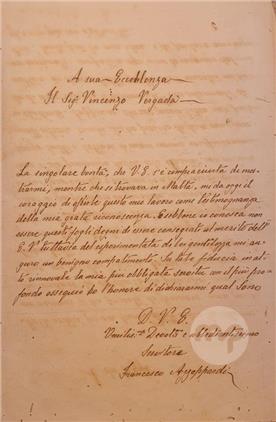 A sua Eccellenza
Il Sigr Vincenzo Vergada
La singolare bontà, che V.E. s'è compiaciuta di mo-
strarmi, mentre che si trovava in Malta, mi da oggi il
coraggio di offrirle questo mio lavoro come testimonianza
della mia grata riconoscenza. Ebbene io conosca non
essere questi fogli degni di essere consegrati al merito dell'
E.V. tuttavia dal esperimentata di lei gentilenza mi au-
guro un benigno compatimento. Su tale fiducia in al-
to rinnovale la mia più obbligata il più pro-
fondo ossequio ho l'honore di dichiararmi qual sono
D. V. E.
Umilis.mo Devoto e obbedientissimo
Servitore
Francesco Azzopardi